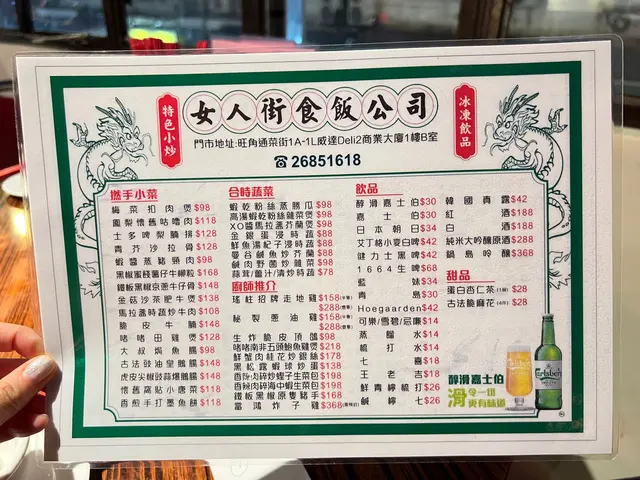 特色小炒
女人街食飯公司
冰凍飲品
門市地址:旺角通菜街1A-1L威達Deli2商業大廈1樓B室
☎26851618
撚手小菜
梅菜扣肉煲$98
鳳梨懷舊咕嚕肉$118
士多啤梨腩排$128
青芥沙拉骨$128
蝦醬蒸豬頸肉$98
黑椒蜜餞薯仔牛柳粒$168
鐵板黑椒京蔥牛仔骨$148
金菇沙茶肥牛煲$138
馬拉盞時蔬炒牛肉$108
脆皮牛腩$148
啫啫田雞煲$128
大叔焗魚腸$98
古法豉油皇鵝腸$148
虎皮尖椒豉蒜爆鵝腸$148
懷舊窩貼小唐菜$118
香煎手打墨魚餅$118
合時蔬菜
蝦乾粉絲蒸勝瓜$98
高湯蝦乾粉絲雜菜煲$98
XO醬馬拉盞芥蘭煲$98
金銀蛋浸時蔬$88
鮮魚湯杞子浸時蔬$88
曼谷鹹魚炒芥蘭$88
鹹肉野菌炒雜菜$98
蒜茸/薑汁/清炒時蔬$78
廚師推介
瑤柱招牌走地雞$158(半隻)
$288(壹隻)
秘製蔥油雞$158(半隻)
$288(壹隻)
生炸脆皮頂鴿$98
啫啫南非五頭鮑魚雞煲$218
鮮蟹肉桂花炒銀絲$178
黑松露蝦球炒蛋$138
香煎肉碎炒蟶子生菜包$198
香煎肉碎海中蝦生菜包$198
鐵板黑椒原隻豬手$168
富鴻炸子雞$368
飲品
醇滑嘉士伯$30
嘉士伯$30
日本朝日$34
艾丁格小麥白啤$42
健力士黑啤$42
1664生啤$68
藍妹$34
青島$30
Hoegaarden$42
可樂/雪碧/忌廉$14
蒸餾水$14
梳打水$14
七喜$18
王老吉$18
鮮青檸梳打$26
鹹檸七$26
韓國真露$42
紅酒$188
白酒$188
純米大吟釀原酒$288
鍋島吟釀$368
甜品
蛋白杏仁茶(1碗)$28
古法脆麻花(4件)$28
Carlsberg
Carlsberg
醇滑嘉士伯
滑令一切
更有味道